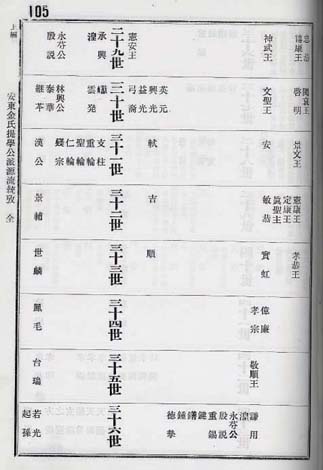 105
忠恭
僖康王
神武王
憲安王
二十九世
承興
湟
永芬公
殷說
閔哀王
啓明
文聖王
英元
興光
益光
弓裔
三十世
雲發
林興公
泰華
景文王
安
軾
三十一世
支柱
重輪
聖輪
仁輪
漢公
憲康王
定康王
眞聖主
敏恭
吉
三十二世
景補
孝恭王
實虹
順
三十三世
世麟
億廉
孝宗
三十四世
鳳毛
敬順王
三十五世
台瑞
謙用
湟
永芬公
殷說
重錫
鍵
錘
德摯
三十六世
若光
起孫
上編
安東金氏提學公派源流攷 全